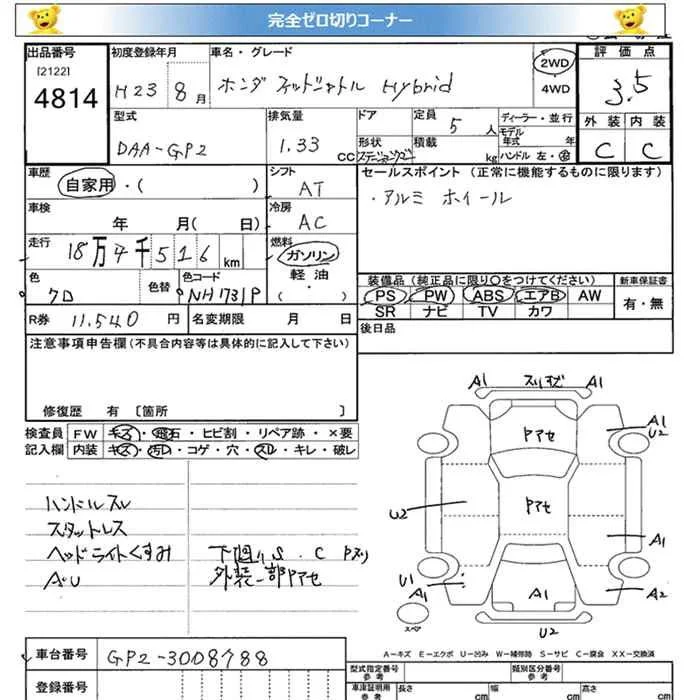 完全ゼロ切りコーナー
出品番号 初度登録年月 車名・グレード 2WD 評価点
[2122] H23 8月 ホンダ フィットシャトル Hybrid 4WD 3.5
4814
型式 排気量 ドア 定員 ディーラー・並行 外装 内装
DAA-GP2 1.33 CC 形状 積載 5人 モデル年式 年 C C
ステーションワゴン kg ハンドル 左・右
車歴 シフト セールスポイント (正常に機能するものに限ります)
自家用・( ) AT ・アルミ ホイール
車検 冷房
年 月(日) AC
走行 燃料
18万4千516km ガソリン
色 色替 色コード 軽油 装備品 (純正品に限り〇をつけてください) 新車保証書
クロ NH731P ・( ) PS PW ABS エアB AW 有・無
SR ナビ TV カワ
R券 11,540円 名変期限 月 日 後日品
注意事項申告欄(不具合内容等は具体的に記入して下さい)
修復歴 有 〔箇所 〕
検査員 FW キズ・飛石・ヒビ割・リペア跡・×要
記入欄 内装 キズ・汚れ・コゲ・穴・スレ・キレ・破レ
ハンドルスレ
スタットレス
ヘッドライトくすみ 下廻りS.C
AU 外装一部Pアセ
A1 スリキズ A1
A1
U2
Pアセ
Pアセ
U2
A1
U1
A1
A2
スペア
U2
A-キズ E-エクボ U-凹み W-補修跡 S-サビ C-腐食 XX-交換済
車台番号 GP2-3008788
登録番号
型式指定番号 参考 類別区分番号 参考
車庫証明用参考 長さ cm 幅 cm 高さ cm